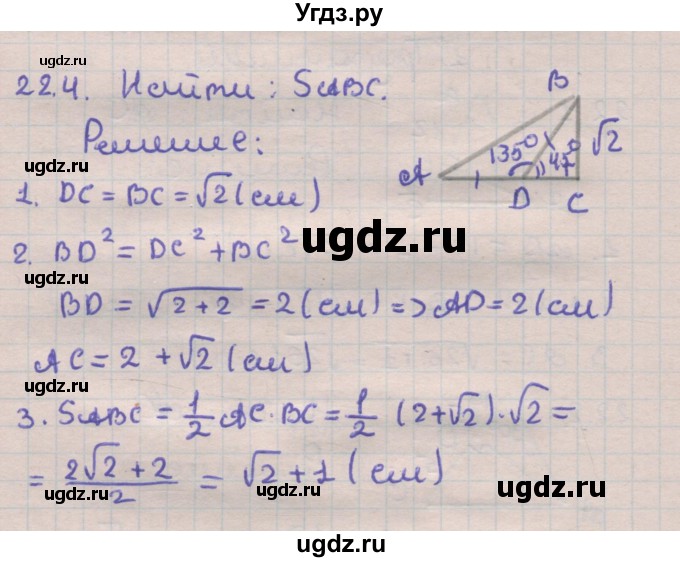 Угдз.ру
ugdz.ru
22.4. Найти: SABC.
Решение:
B
135° 45°
√2
A
D
C
ugdz.ru
ugdz.ru
1. DC = BC = √2 (см)
ugdz.ru
2. BD² = DC² + BC²
ugdz.ru
ugdz.ru
BD = √2+2 = 2 (см) => AD = 2 (см)
AC = 2 + √2 (см)
ugdz.ru
ugdz.ru
3. SABC = 1/2 AC · BC = 1/2 (2+√2) · √2 =
ugdz.ru
= 2√2 + 2 / 2 = √2 + 1 (см)
ugdz.ru
ugdz.ru
ugdz.ru
ugdz.ru